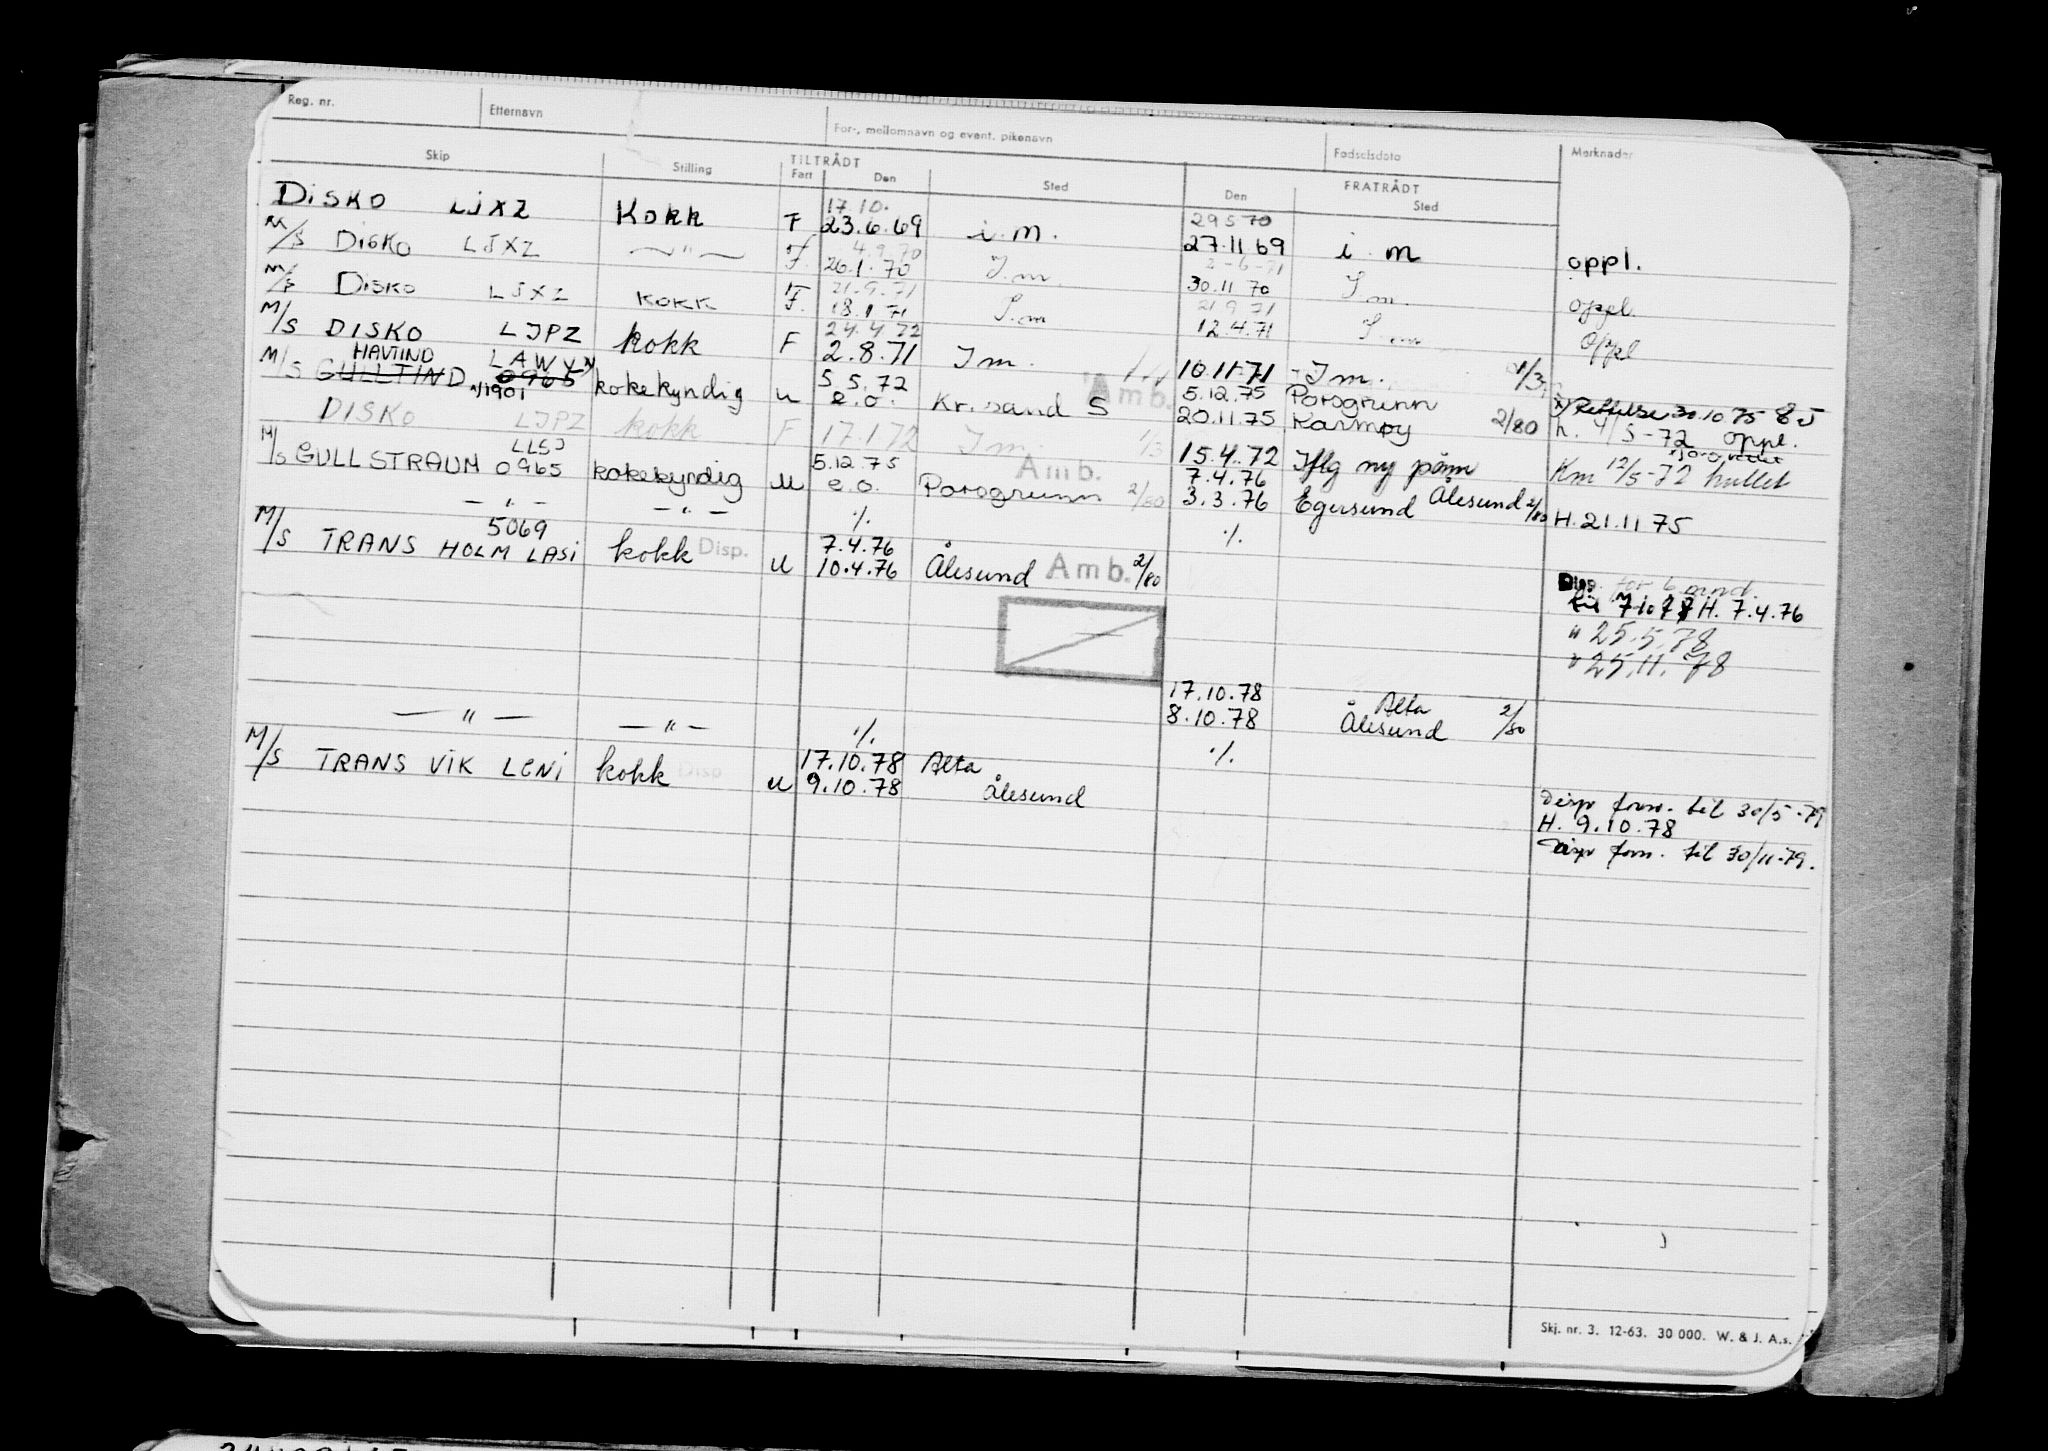 Reg. nr. Etternavn For-, mellomnavn og event. pikenavn Fødselsdato Merknader
Skip Stilling TILTRÅDT FRATRÅDT
Fart Den Sted Den Sted
17.10. 29 5 70
DISKO LJXZ Kokk F 23.6.69 i.m. 27.11 69 i.m oppl.
4.9.70 2-6-71
M/S DISKO LJXZ — " — F. 26.1.70 I.m. 30.11 70 I.m. oppl.
21.9.71 21 9 71
M/S DISKO LJXZ KOKK F. 18.1 71 I.m 12.4.71 I.m oppl
24.4 72
M/S DISKO LJPZ kokk F 2.8.71 Im. 10.11.71 Im. 1/3
HAVTIND LAWY 5.5.72 Amb. 5.12.75 Porsgrunn x) Rettelse 30.10 75 EJ
M/S GULLTIND 0965 1901 kokekyndig u e.o. Kr.sand S 20.11.75 Karmøy 2/80 h. 4/5-72 oppl.
DISKO LJPZ kokk F 17.1 72 Im. 1/3 15.4.72 Iflg ny pånm Km 12/5-72 hullet
LLSJ 5.12.75 Amb. 7.4.76 Ålesund 2/80
M/S GULLSTRAUM 0965 kokekyndig u e.o. Porsgrunn 2/80 3.3.76 Egersund H. 21.11 75
— " — — " — ./. ./.
5069 7.4.76
M/S TRANS HOLM LASI kokk Disp. u 10.4.76 Ålesund Amb. 2/80
Disp. for 6 mnd.
til H. 7.4.76
" 25.5.78
" 25.11.78
17.10.78 Alta
8.10.78 Ålesund 2/80
— " — — " — ./. ./.
17.10.78 Alta
M/S TRANS VIK LENI kokk Disp u 9.10.78 Ålesund
Disp forn. til 30/5-79
H. 9.10.78
Disp forn. til 30/11-79.
Skj. nr. 3. 12-63. 30 000. W. & J. A.s.